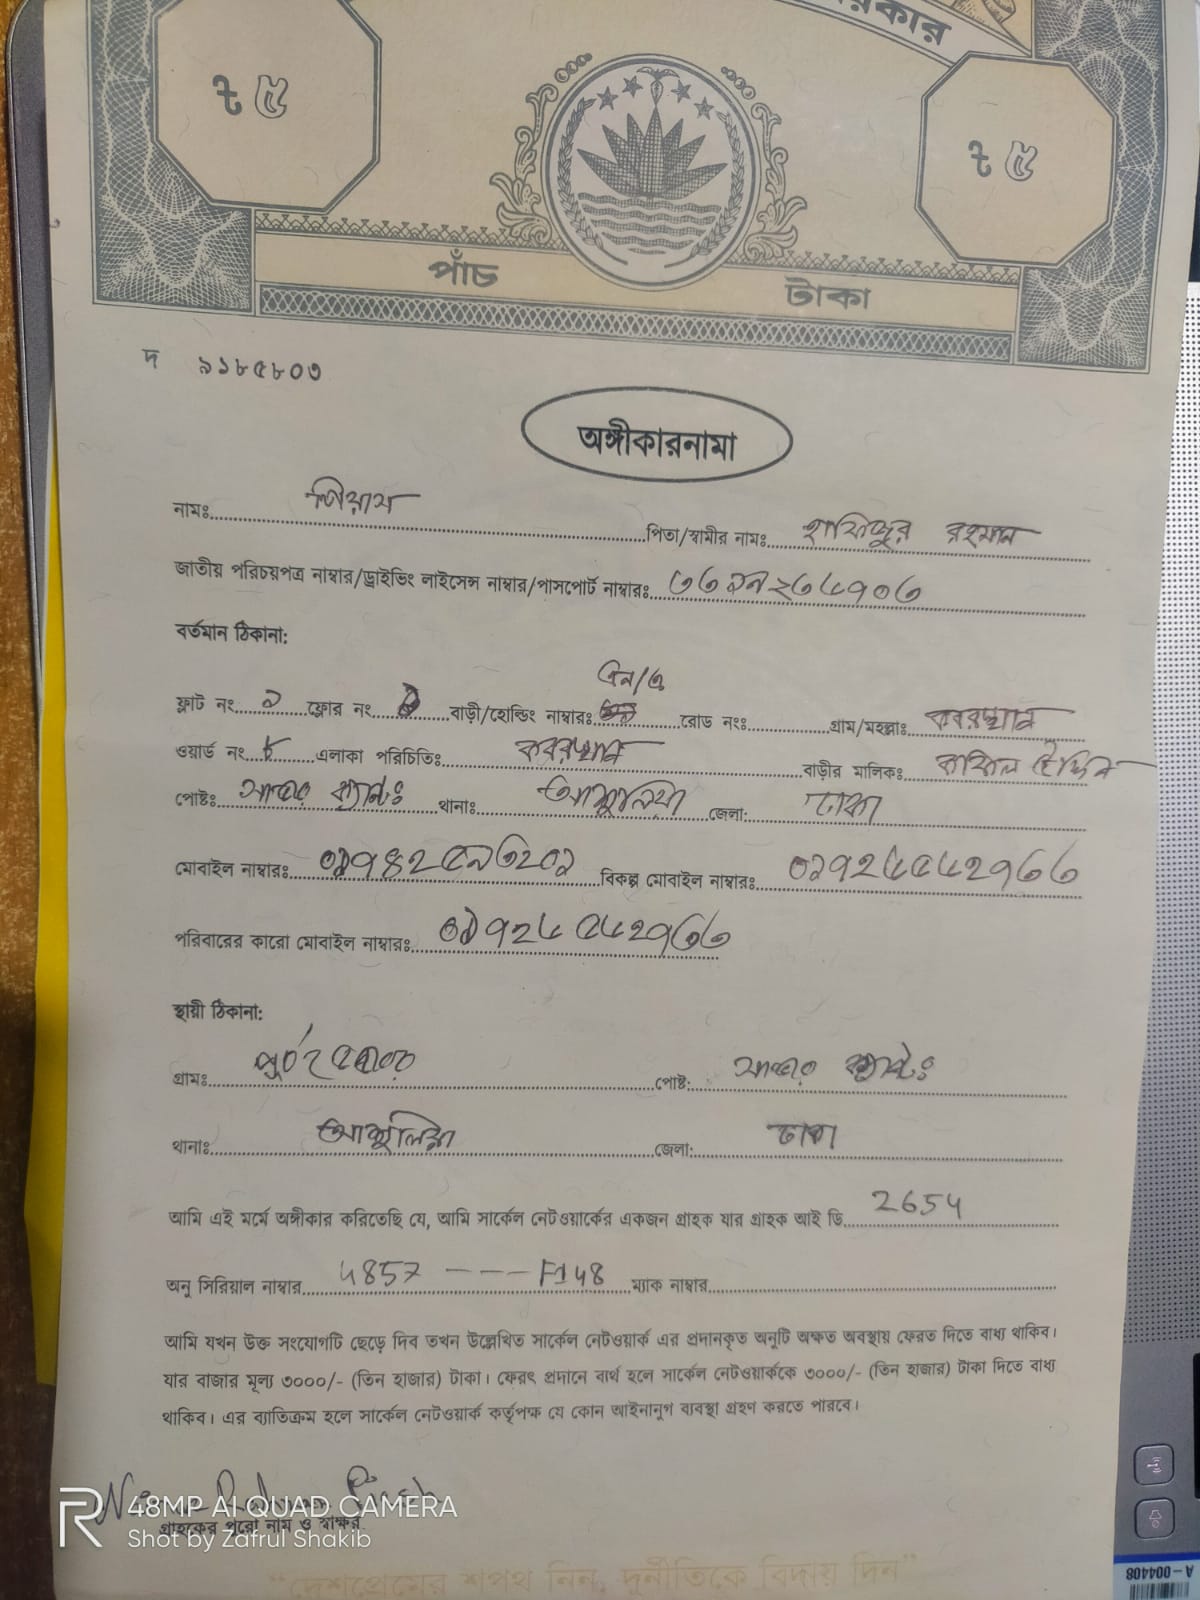 রকার
৳ ৫
৳ ৫
পাঁচ টাকা
দ ৯১৮৫৮০৩
অঙ্গীকারনামা
নামঃ পিতা/স্বামীর নামঃ হাফিজুর রহমান
জাতীয় পরিচয়পত্র নাম্বার/ড্রাইভিং লাইসেন্স নাম্বার/পাসপোর্ট নাম্বারঃ
বর্তমান ঠিকানা:
এন/এ
ফ্লাট নং ফ্লোর নং বাড়ী/হোল্ডিং নাম্বারঃ রোড নংঃ গ্রাম/মহল্লাঃ কবরস্থান
ওয়ার্ড নং ৮ এলাকা পরিচিতিঃ কবরস্থান বাড়ীর মালিকঃ
পোষ্টঃ সাভার ক্যান্টঃ থানাঃ আশুলিয়া জেলা: ঢাকা
মোবাইল নাম্বারঃ বিকল্প মোবাইল নাম্বারঃ ০১৭২৬৫৬২৭৩৩
পরিবারের কারো মোবাইল নাম্বারঃ ০১৭২৬৫৬২৭৩৩
স্থায়ী ঠিকানা:
গ্রামঃ পোষ্ট: সাভার ক্যান্টঃ
থানাঃ আশুলিয়া জেলা: ঢাকা
আমি এই মর্মে অঙ্গীকার করিতেছি যে, আমি সার্কেল নেটওয়ার্কের একজন গ্রাহক যার গ্রাহক আই ডি 2654
অনু সিরিয়াল নাম্বার 4857 --- F148 ম্যাক নাম্বার
আমি যখন উক্ত সংযোগটি ছেড়ে দিব তখন উল্লেখিত সার্কেল নেটওয়ার্ক এর প্রদানকৃত অনুটি অক্ষত অবস্থায় ফেরত দিতে বাধ্য থাকিব।
যার বাজার মূল্য ৩০০০/- (তিন হাজার) টাকা। ফেরৎ প্রদানে ব্যর্থ হলে সার্কেল নেটওয়ার্ককে ৩০০০/- (তিন হাজার) টাকা দিতে বাধ্য
থাকিব। এর ব্যাতিক্রম হলে সার্কেল নেটওয়ার্ক কর্তৃপক্ষ যে কোন আইনানুগ ব্যবস্থা গ্রহণ করতে পারবে।
গ্রাহকের পুরো নাম ও স্বাক্ষর
R 48MP AI QUAD CAMERA
Shot by Zafrul Shakib
"দেশপ্রেমের শপথ নিন, দুর্নীতিকে বিদায় দিন"
A-004408